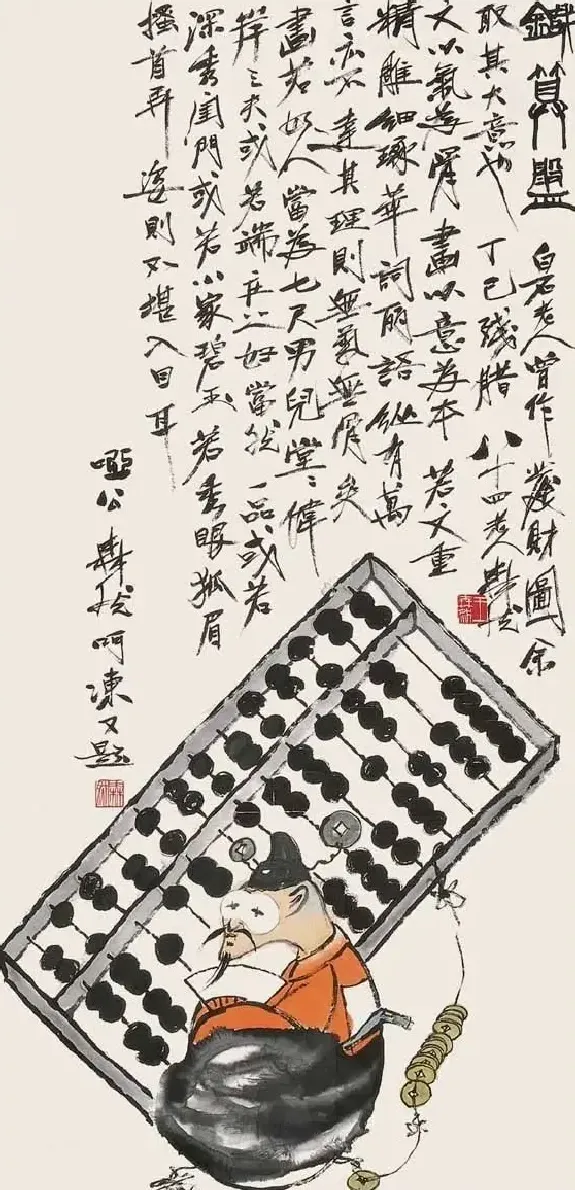 鐵算盤 白石老人曾作發財圖余
取其大意也 丁巳残腊 八十四老人
文以氣為骨 畫以意為本 若文重
精雕細琢華詞丽語縱有萬
言亦不達其理則無氣無骨矣
畫若如人當為七尺男兒堂〻偉
岸之夫或若端庄之好當然一品或若
深秀閨門或若小家碧玉若秀眼狐眉
搔首弄姿則不堪入目耳
啞公 呵凍又題